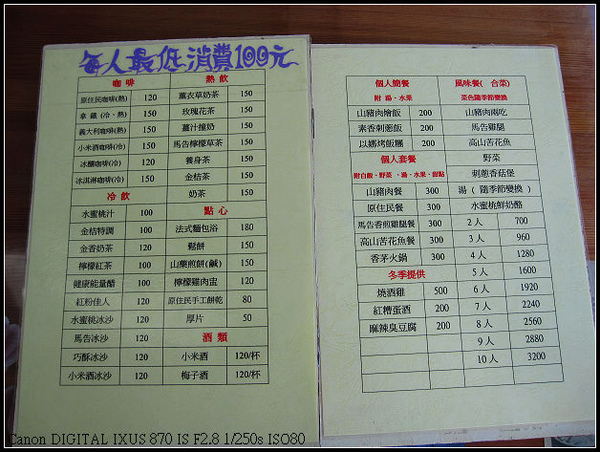 每人最低消費100元
咖啡 熱飲
原住民咖啡(熱) 120 薰衣草奶茶 150
拿鐵(冷、熱) 150 玫瑰花茶 150
義大利咖啡(熱) 150 薑汁撞奶 150
小米酒咖啡(冷) 150 馬告檸檬草茶 150
冰釀咖啡(冷) 120 養身茶 150
冰淇淋咖啡(冷) 150 金桔茶 150
冷飲 奶茶 150
水蜜桃汁 100 點心
金桔特調 100 法式麵包浴 180
金香奶茶 120 鬆餅 150
檸檬紅茶 100 山藥煎餅(鹹) 150
健康能量醋 100 檸檬雞肉盅 120
紅粉佳人 120 原住民手工餅乾 80
水蜜桃冰沙 120 厚片 50
馬告冰沙 120 酒類
巧酥冰沙 120 小米酒 120/杯
小米酒冰沙 120 梅子酒 120/杯
個人簡餐 風味餐(合菜)
附湯、水果 菜色隨季節變換
山豬肉燴飯 200 山豬肉兩吃
素香刺蔥飯 200 馬告雞腿
以娜烤飯糰 200 高山苦花魚
個人套餐 野菜
附白飯、野菜、湯、水果、甜點 刺蔥香菇堡
山豬肉餐 300 湯(隨季節變換)
原住民餐 300 水蜜桃鮮奶酪
馬告香煎雞腿餐 300 2人 700
高山苦花魚餐 300 3人 960
香茅火鍋 300 4人 1280
冬季提供 5人 1600
燒酒雞 500 6人 1920
紅糟蛋酒 200 7人 2240
麻辣臭豆腐 200 8人 2560
9人 2880
10人 3200
Canon DIGITAL IXUS 870 IS F2.8 1/250s ISO80